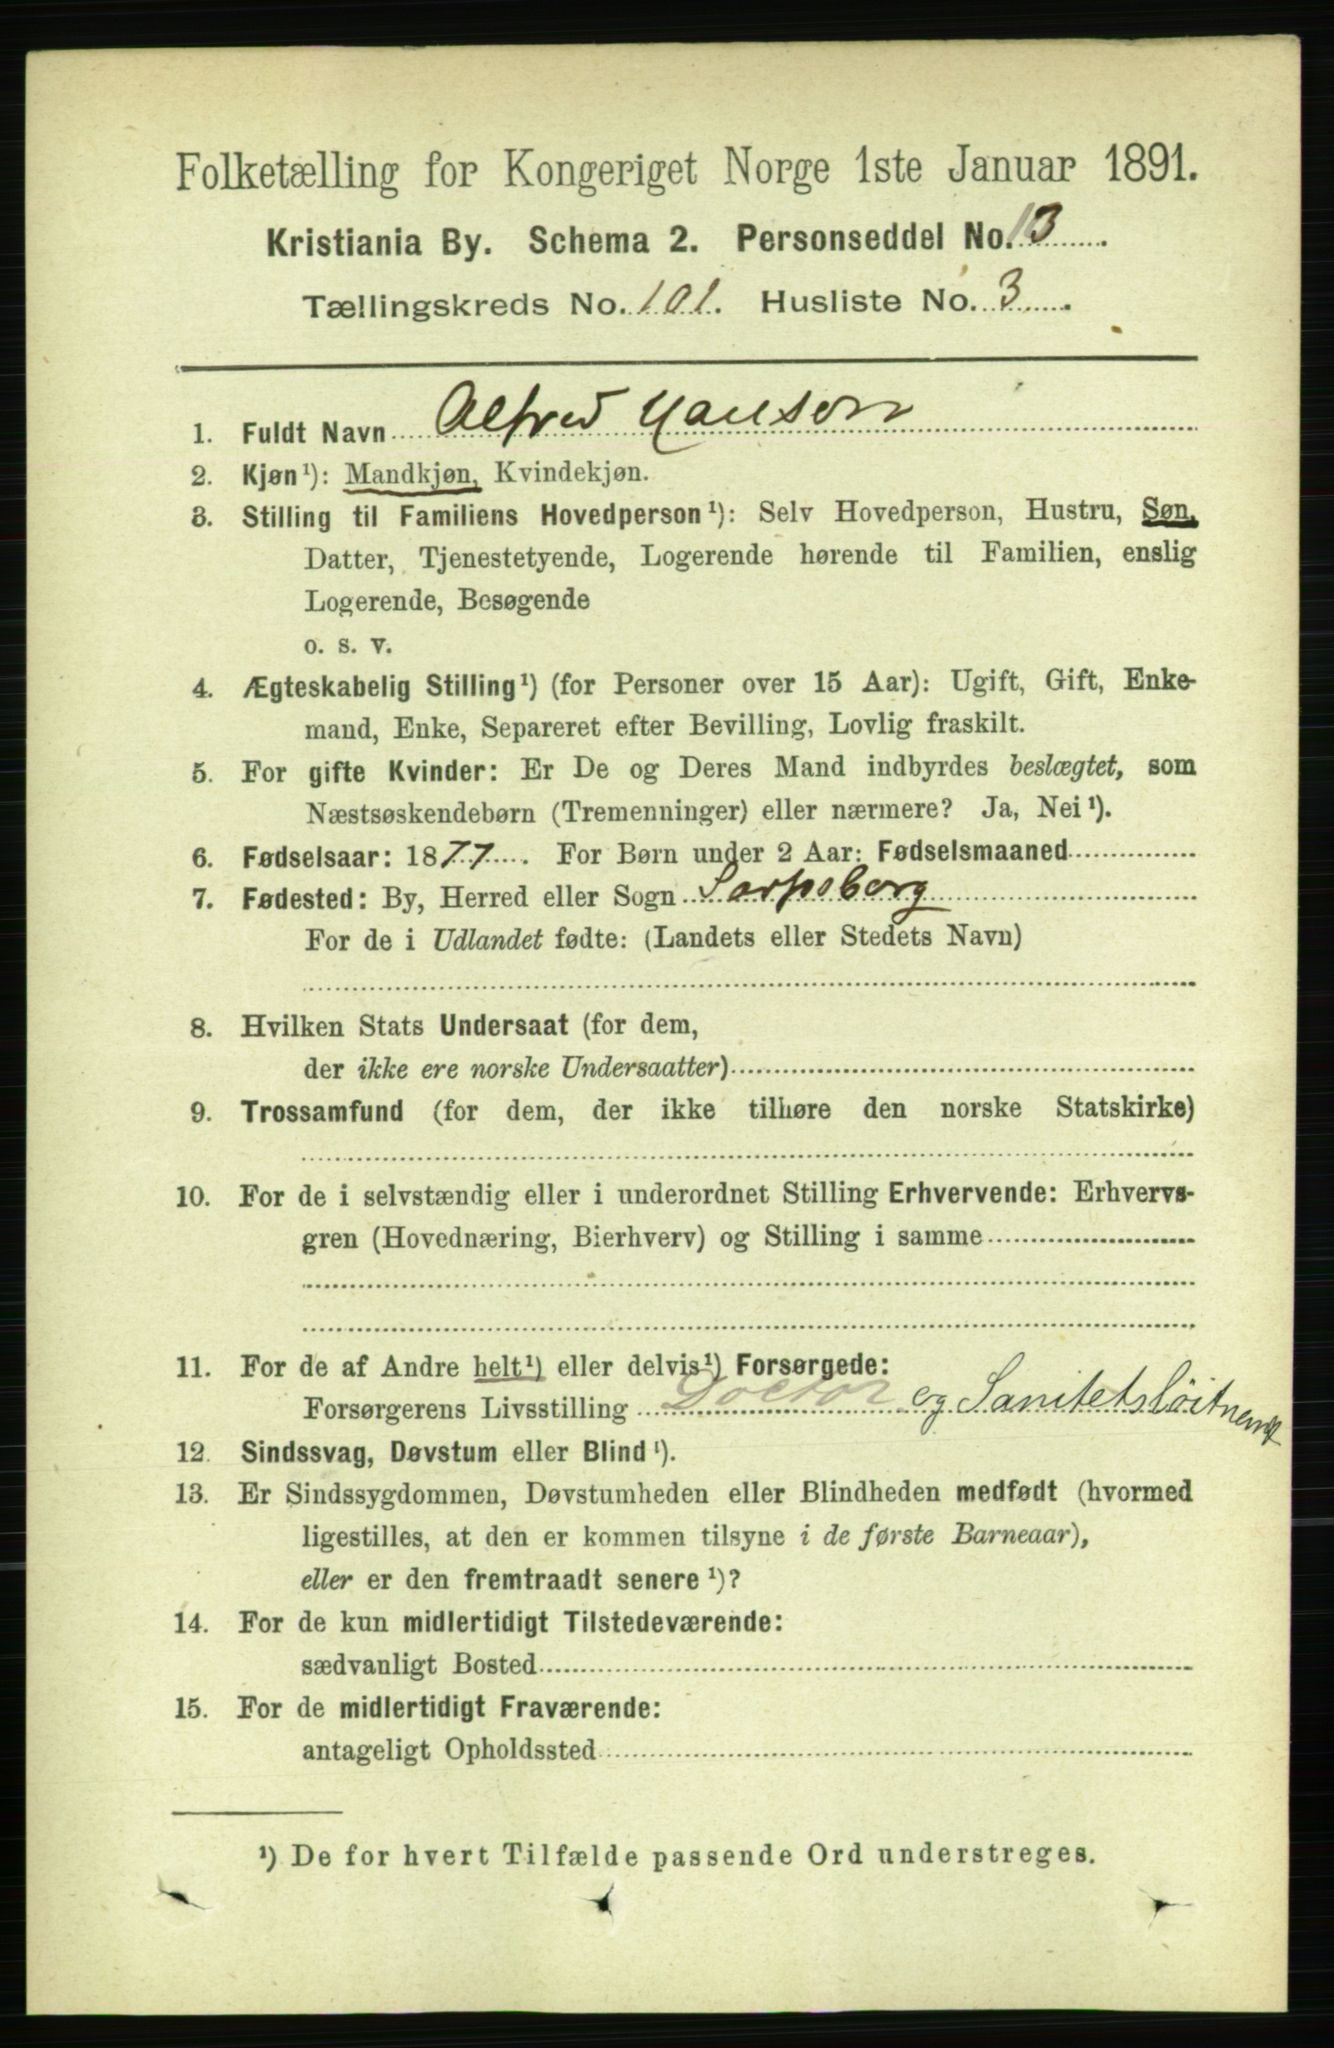 Folketælling for Kongeriget Norge 1ste Januar 1891.
Kristiania By. Schema 2. Personseddel No. 13
Tællingskreds No. 101. Husliste No. 3
1. Fuldt Navn Alfred Hansen
2. Kjøn¹): Mandkjøn, Kvindekjøn.
3. Stilling til Familiens Hovedperson¹): Selv Hovedperson, Hustru, Søn,
Datter, Tjenestetyende, Logerende hørende til Familien, enslig
Logerende, Besøgende
o. s. v.
4. Ægteskabelig Stilling¹) (for Personer over 15 Aar): Ugift, Gift, Enke-
mand, Enke, Separeret efter Bevilling, Lovlig fraskilt.
5. For gifte Kvinder: Er De og Deres Mand indbyrdes beslægtet, som
Næstsøskendebørn (Tremenninger) eller nærmere? Ja, Nei¹).
6. Fødselsaar: 1877. For Børn under 2 Aar: Fødselsmaaned
7. Fødested: By, Herred eller Sogn Sarpsborg
For de i Udlandet fødte: (Landets eller Stedets Navn)
8. Hvilken Stats Undersaat (for dem,
der ikke ere norske Undersaatter)
9. Trossamfund (for dem, der ikke tilhøre den norske Statskirke)
10. For de i selvstændig eller i underordnet Stilling Erhvervende: Erhvervs-
gren (Hovednæring, Bierhverv) og Stilling i samme
11. For de af Andre helt¹) eller delvis¹) Forsørgede:
Forsørgerens Livsstilling Doctor og Sanitetsløitnent
12. Sindssvag, Døvstum eller Blind¹).
13. Er Sindssygdommen, Døvstumheden eller Blindheden medfødt (hvormed
ligestilles, at den er kommen tilsyne i de første Barneaar),
eller er den fremtraadt senere¹)?
14. For de kun midlertidigt Tilstedeværende:
sædvanligt Bosted
15. For de midlertidigt Fraværende:
antageligt Opholdssted
¹) De for hvert Tilfælde passende Ord understreges.